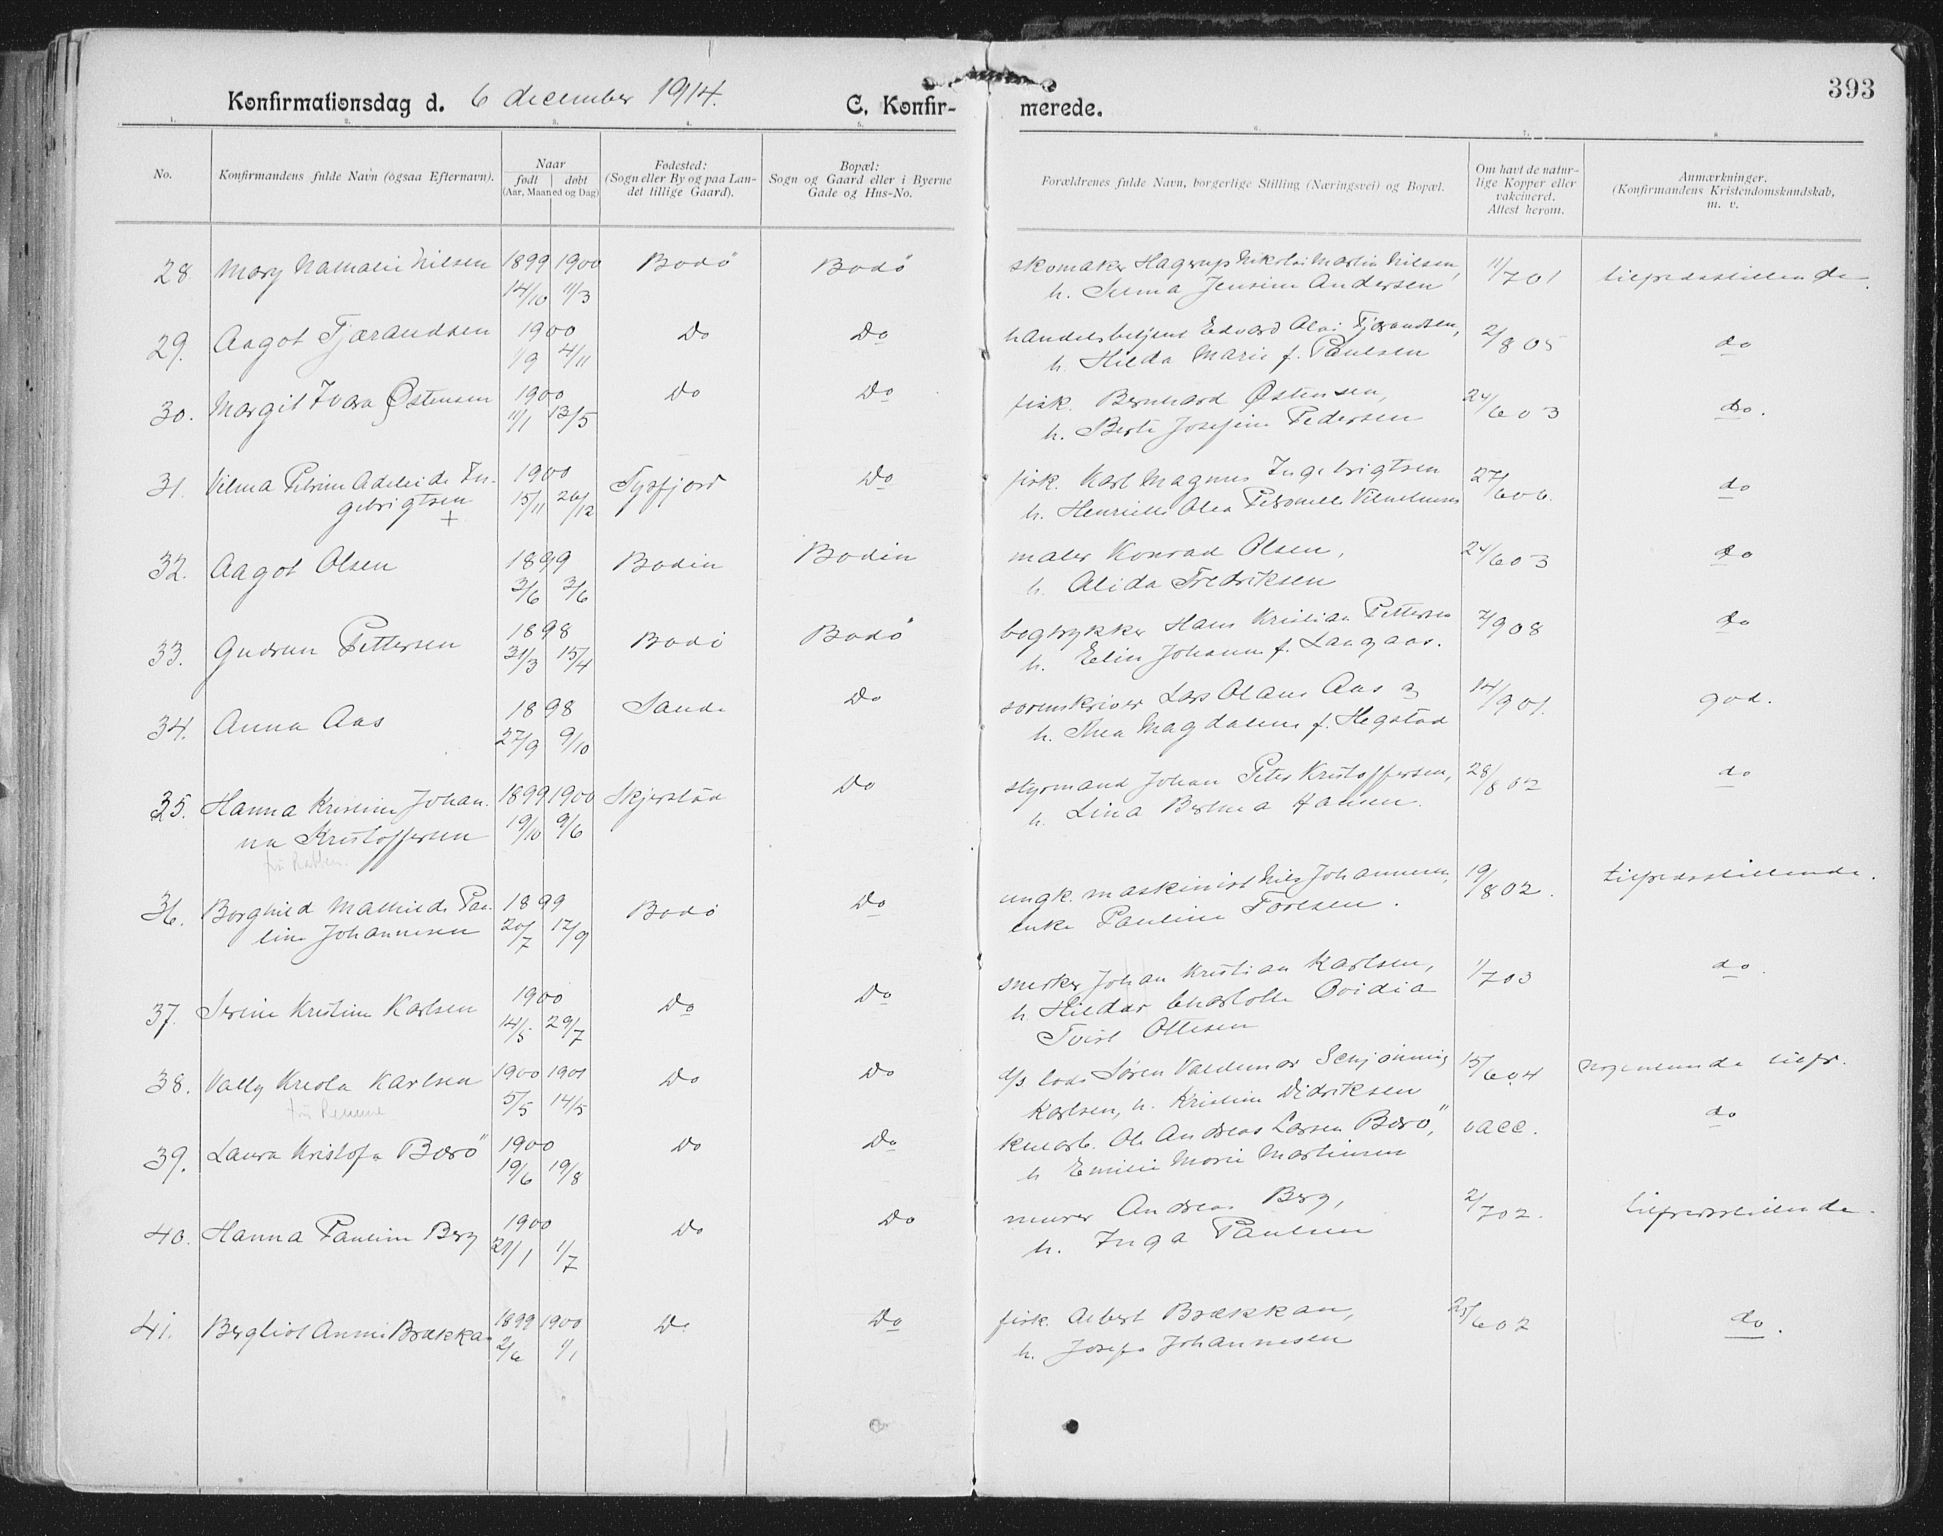 393
Konfirmationsdag d. 6 december 1914. C. Konfir- merede.
1. 2. 3. 4. 5. 6. 7. 8
No. Konfirmandens fulde Navn (ogsaa Efternavn). Naar født døbt (Aar, Maaned og Dag) Fødested: (Sogn eller By og paa Lan- det tillige Gaard). Bopæl: Sogn og Gaard eller i Byerne Gade og Hus-No. Forældrenes fulde Navn, borgerlige Stilling (Næringsvei) og Bopæl. Om havt de natur- lige Kopper eller vakcineret. Attest herom. Anmærkninger. (Konfirmandens Kristendomskundskab, m. v.
28 Mary Nathalie Nilsen 1899 1900 Bodö Bodö skomaker Hagerup Nikolai Martin Nilsen, 11/7 01 tilfredsstillende.
14/10 11/3 h. Jensine Andersen
29. Aagot Tjærandsen 1900 Do Do handelsbetjent Edvard Tjærandsen, 2/8 05 do
1/9 4/11 h. Hilda Marie f. Paulsen
30. Margit Ivara Østensen 1900 Do Do fisk. Bernhard Østensen, 24/6 03 do.
11/1 13/5 h. Berte Josefine Pedersen
31. Vilma Petrine Adeleide In- 1900 Tysfjord Do fisk. Karl Magnus Ingebrigtsen 27/6 06. do
gebrigtsen 15/11 26/12 h. Henriette Olea Petronelle
+
32. Aagot Olsen 1899 Bodin Bodin maler Konrad Olsen, 24/6 03 do
3/6 h. Alida Fredriksen
33. Gudrun Pettersen 1898 Bodö Bodö bogtrykker Hans Kristian Pettersen 7/9 08 do
31/3 15/4 h. Elin Johanne f. Langaas.
34. Anna Aas 1898 Sande Do sorenskriver Lars Olaus Aas og 14/9 01. god.
27/9 9/10 h. Thea Magdalene f. Hegstad
35. Hanna Kristine Johan- 1899 1900 Skjerstad Do styrmand Johan Peter Kristoffersen, 28/8 02 do
na Kristoffersen 19/10 9/6 h. Lina Berthea Hansen.
36. Borghild Mathilde Pau- 1899 Bodö Do ungk. maskinist Nils Johannesen, 19/8 02. tilfredsstillende.
line Johannesen 20/7 17/9 enke Pauline
37. Serine Kristine Karlsen 1900 Do Do snerker Johan Kristian Karlsen, 1/7 03 do.
14/5 29/7 h. Hildur Charlotte Ovidia
Tvist Ottesen
38. Vally Kreola Karlsen 1900 1901 Do Do d/s lods Søren Valdemar Schjønning 15/6 04 nogenlunde tilfr.
5/5 14/5 Karlsen, h. Kristine Didriksen
39. Laura Kristofa Borö 1900 Do Do Ole Andreas Larsen Borö, vacc. do
19/6 19/8 h. Emilie Marie Martinsen
40. Hanna Pauline Berg 1900 Do Do murer Andreas Berg, 2/7 02. tilfredsstillende.
1/7 h. Inga Paulsen
41. Bergliot Annie Brækkan 1899 1900 Do Do fisk. Albert Brækkan, 25/6 02 do.
2/6 1/1 h. Josefa Johannesen